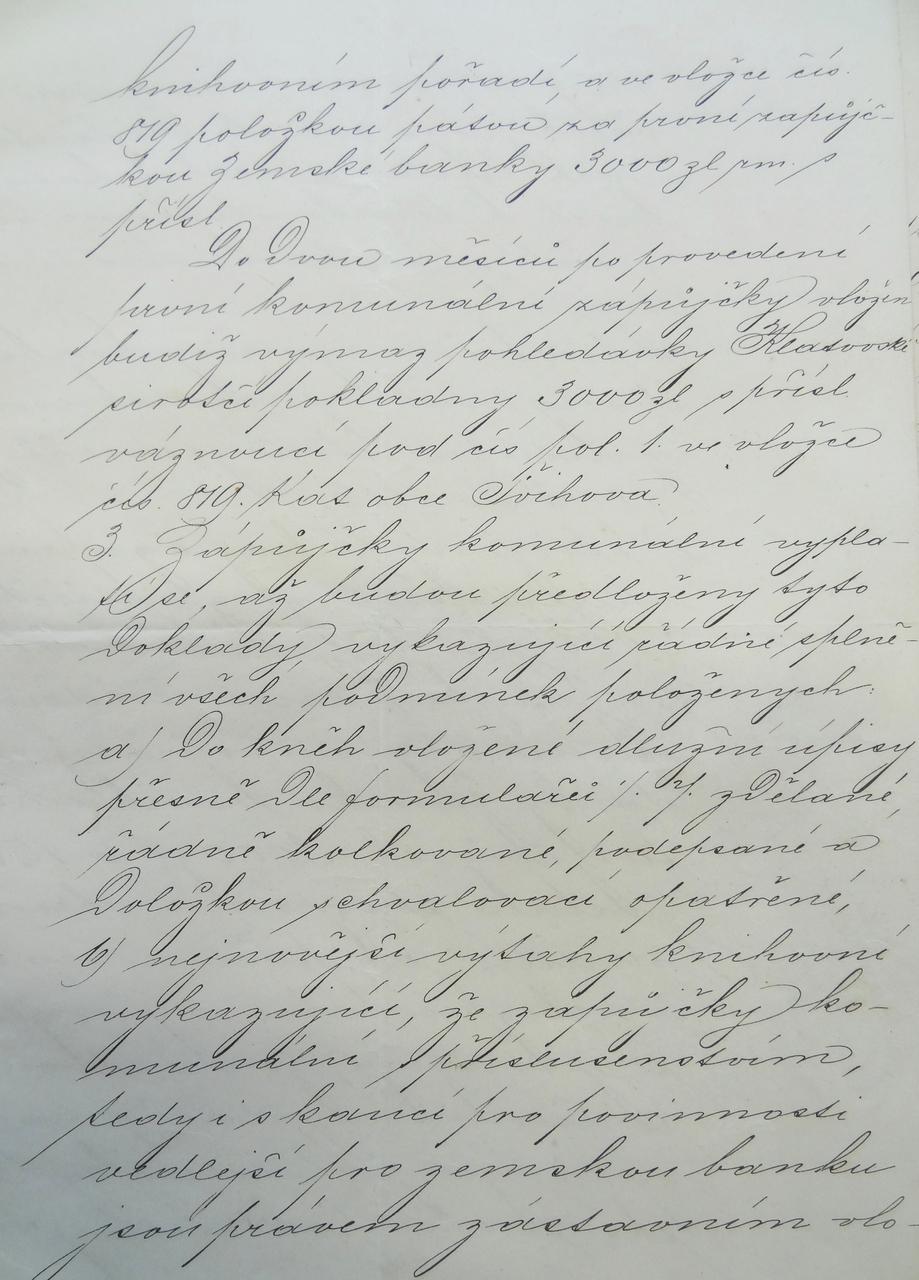 knihovním pořadí, a ve vložce čís.
819 položkou pátou za první zapůjč-
kou Zemské banky 3000 zl rm. s
přísl.
Do dvou měsíců po provedení
první komunální zápůjčky vložen
budiž výmaz pohledávky Klatovské
sirotčí pokladny 3000 zl s přísl.
váznoucí pod čís pol. 1. ve vložce
čís. 819. Kat obce Švihova
3. Zápůjčky komunální vypla-
tí se, až budou předloženy tyto
doklady, vykazující řádné splně-
ní všech podmínek položených:
a) Do kněh vložené dlužní úpisy
přesně dle formulářů ⁒ ⁒ zdělané,
řádně kolkované, podepsané a
Doložkou schvalovací opatřené,
b) nejnovější výtahy knihovní
vykazující, že zapůjčky ko-
munální s příslušenstvím,
tedy i s kaucí pro povinnosti
vedlejší pro zemskou banku
jsou právem zástavním vlo-